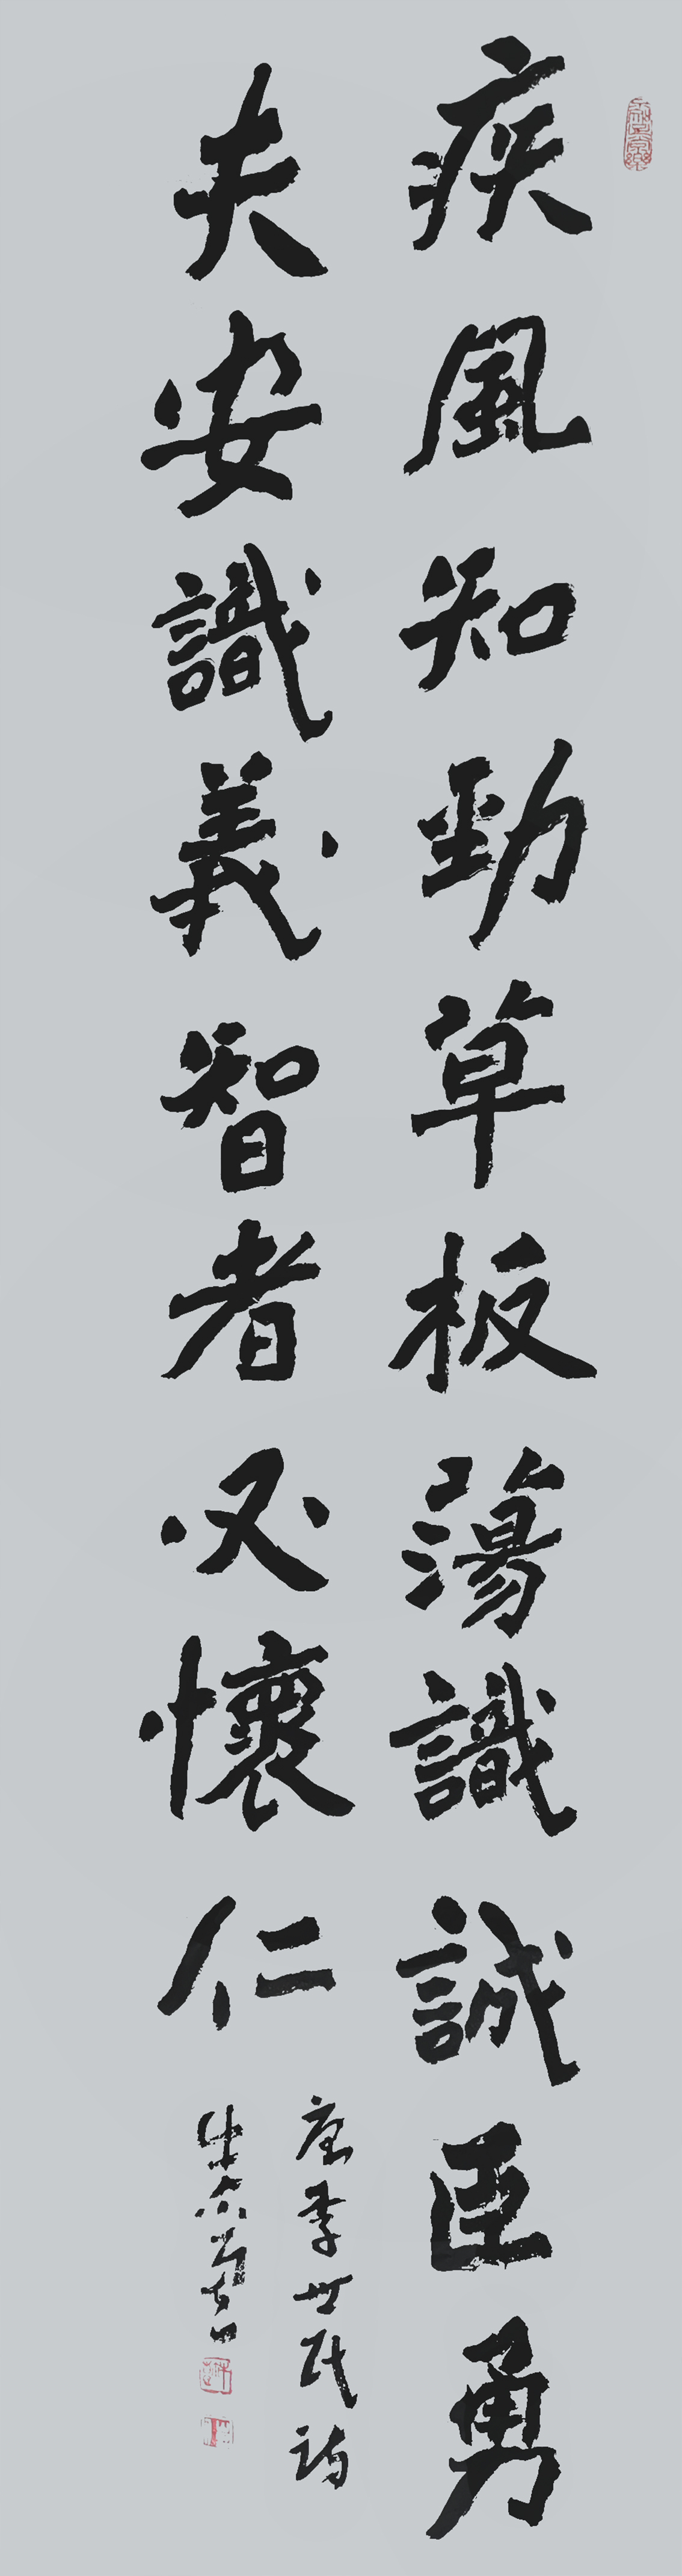 疾風知勁草板蕩識誠臣勇
夫安識義智者必懷仁
唐李世民詩